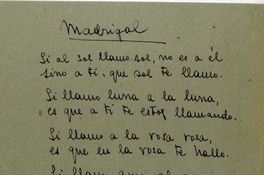 Madrigal
Si al sol llamo sol, no es a él
sino a ti, que sol te llamo.
Si llamo luna a la luna,
es que a ti te estoy llamando.
Si llamo a la rosa rosa,
es que en la rosa te hallo.
Si llamo